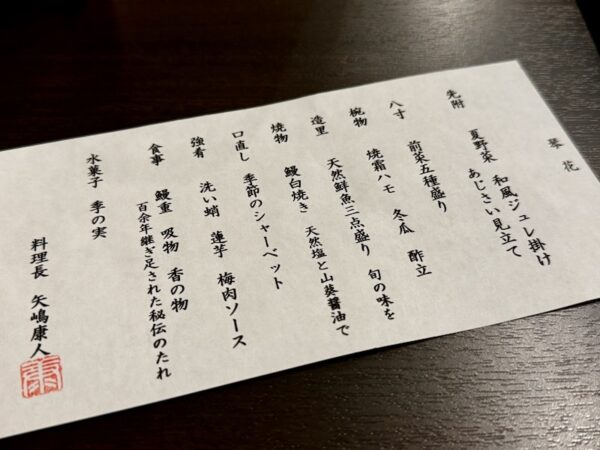 琴花
先附 夏野菜 和風ジュレ掛け
あじさい見立て
八寸 前菜五種盛り
椀物 焼霜ハモ 冬瓜 酢立
造里 天然鮮魚三点盛り 旬の味を
焼物 鰻白焼き 天然塩と山葵醤油で
口直し 季節のシャーベット
強肴 洗い蛸 蓮芋 梅肉ソース
食事 鰻重 吸物 香の物
百余年継ぎ足された秘伝のたれ
水菓子 季の実
料理長 矢嶋康人